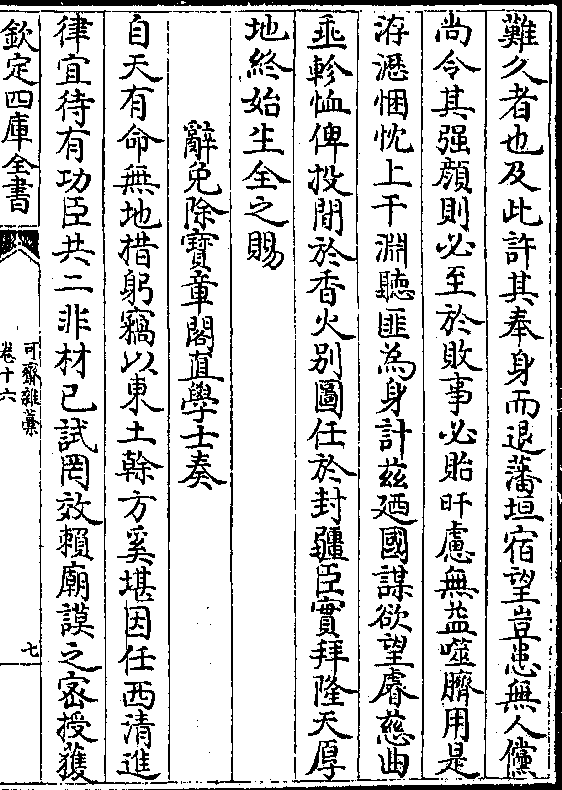 難久者也及此許其奉身而退藩垣宿望豈患無人儻
尚令其强顔則必至於敗事必貽旰慮無益噬臍用是
洊瀝悃忱上干淵聽匪為身計兹廼國謀欲望睿慈曲
垂軫恤俾投閒於香火别圖任於封疆臣實拜隆天厚
地終始生全之賜
辭免除寳章閣直學士奏
自天有命無地措躬竊以東土榦方奚堪因任西清進
律宜待有功臣共二非材已試罔效賴廟謨之宻授獲
欽定四庫全書
可齋雜藁
卷十六
七